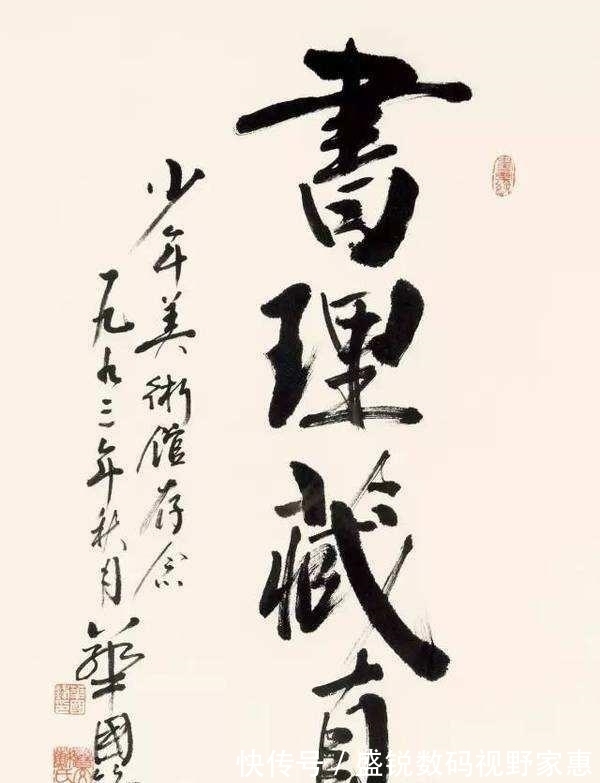 書理藏真
少年美術館存念
一九九三年秋月
華國
快传号 / 盛锐数码视野家惠